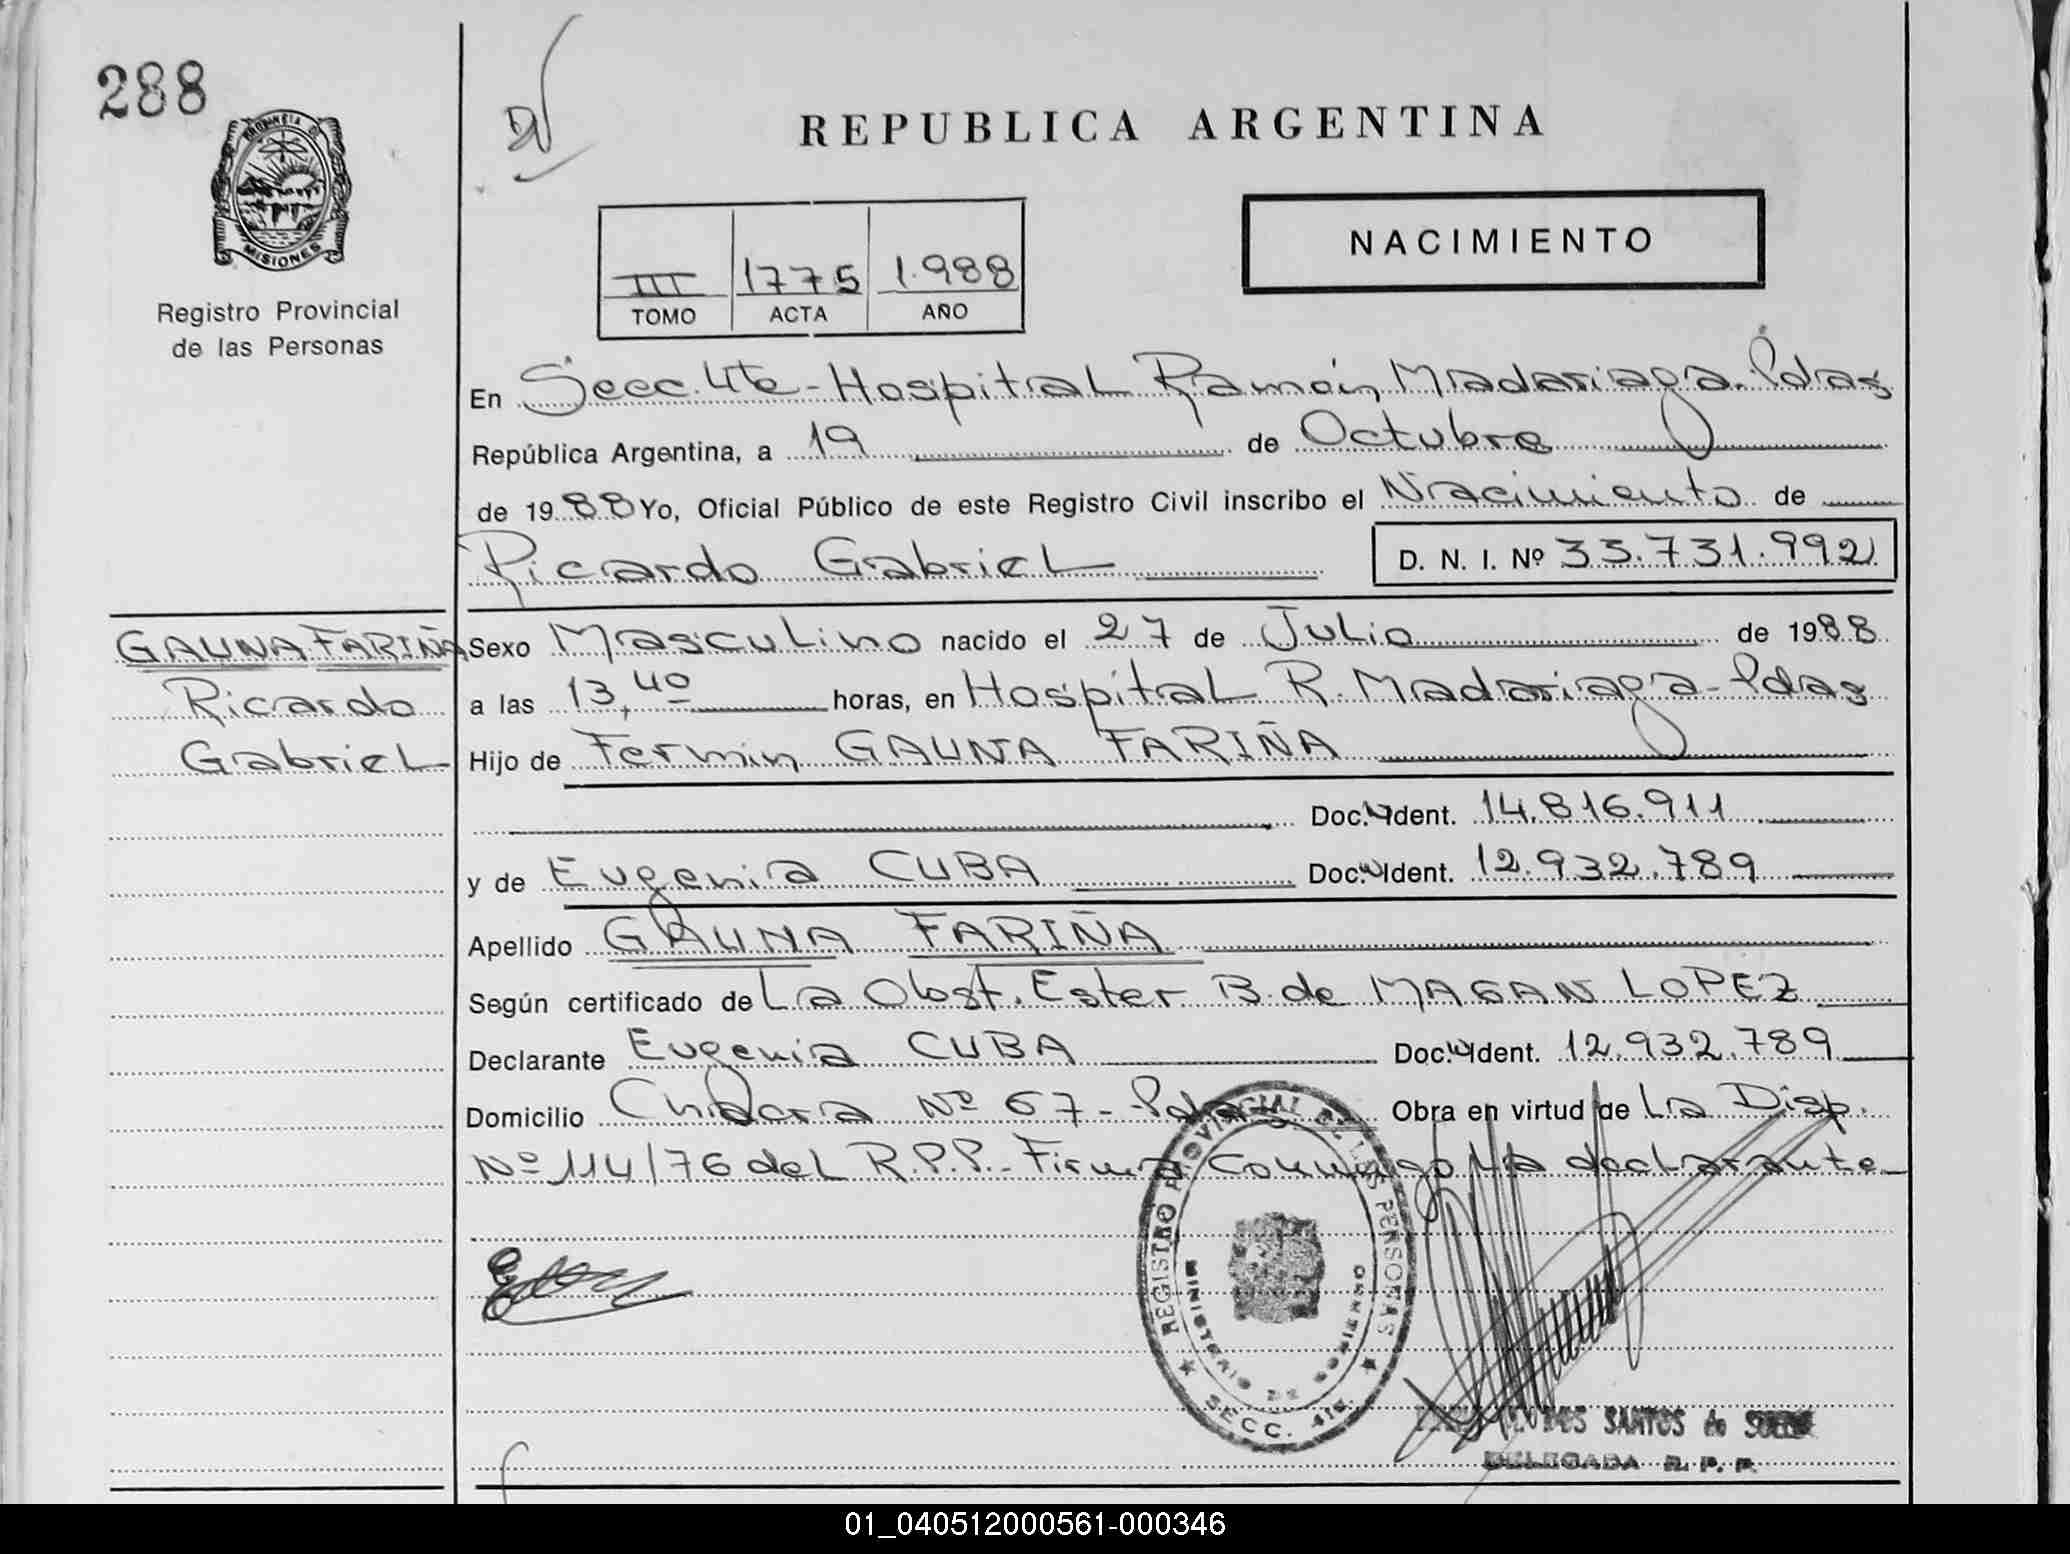 288
PROVINCIA DE
MISIONES
Registro Provincial
de las Personas
REPUBLICA ARGENTINA
NACIMIENTO
III 1775 1.988
TOMO ACTA AÑO
En Secc. 4ta - Hospital Ramón Madariaga. Pdas
República Argentina, a 19 de Octubre
de 1988 Yo, Oficial Público de este Registro Civil inscribo el Nacimiento de
Ricardo Gabriel D. N. I. Nº 33.731.992
GAUNA FARIÑA
Ricardo
Gabriel
Sexo Masculino nacido el 27 de Julio de 1988
a las 13,40 horas, en Hospital R. Madariaga - Pdas
Hijo de Fermin GAUNA FARIÑA
Doc. Ident. 14.816.911
y de Eugenia CUBA Doc. Ident. 12.932.789
Apellido GAUNA FARIÑA
Según certificado de La Obst. Ester B. de MAGAN LOPEZ
Declarante Eugenia CUBA Doc. Ident. 12.932.789
Domicilio Nº 67 - Pdas Obra en virtud de La Disp.
Nº 114/76 del R.P.P. - Firma Conmigo la declarante
REGISTRO PROVINCIAL DE LAS PERSONAS
MINISTERIO DE GOBIERNO
SECC. 4ta.
SANTOS de
DELEGADA R. P. P.
01_040512000561-000346